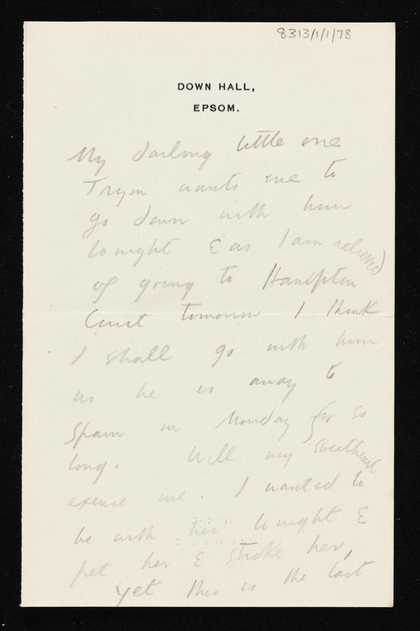 8313/1/1/78
DOWN HALL,
EPSOM.
My darling little one
Tryon wants me to
go down with him
tonight & as I am relieved
of going to Hampton
Court tomorrow I think
I shall go with him
as he is away to
Spain on Monday for so
long. Will my sweetheart
excuse me. I wanted to
be with her tonight &
pet her & stroke her,
yet this is the last